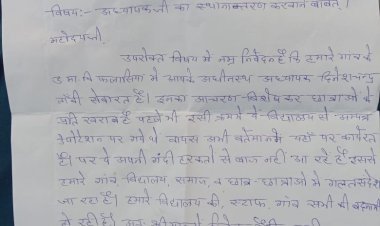 विषय:- अध्यापकजी का स्थानान्तरण करवाने बाबत।
महोदयजी,
उपरोक्त विषय में नम्र निवेदन है कि हमारे गांव के
उ.मा.वि. फलासिया में आपके अधीनस्थ अध्यापक दिनेशचन्द्र
सेवारत है। इनका आचरण विशेषकर छात्राओं के
प्रति खराब है पहले भी इसी क्रम में ये विद्यालय से अन्यत्र
डेपोटेशन पर गये थे वापस अभी वर्तमान में यहाँ पर कार्यरत
है। पर ये अपनी गंदी हरकतों से बाज नहीं आ रहे हैं इससे
हमारे गांव, विद्यालय, समाज, व छात्र-छात्राओं में गलत संदेश
जा रहा है। हमारे विद्यालय की, स्टाफ, गांव सभी की बदनामी
हो रही है। अतः